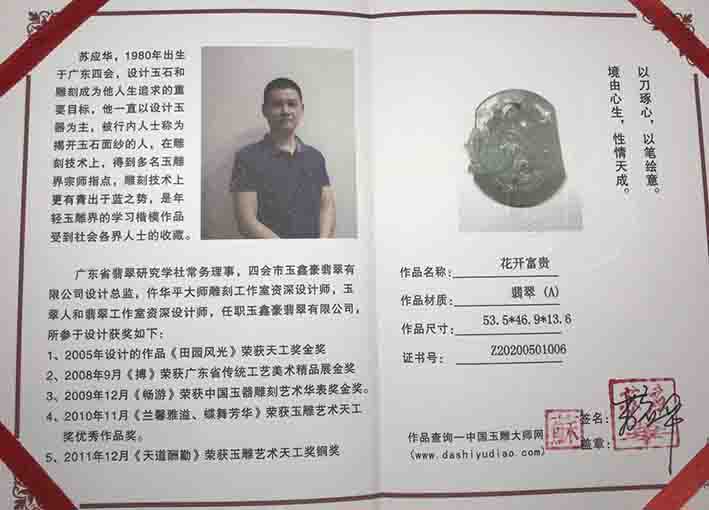 苏应华，1980年出生
于广东四会，设计玉石和
雕刻成为他人生追求的重
要目标，他一直以设计玉
器为主，被行内人士称为
揭开玉石面纱的人，在雕
刻技术上，得到多名玉雕
界宗师指点，雕刻技术上
更有青出于蓝之势，是年
轻玉雕界的学习楷模作品
受到社会各界人士的收藏。
广东省翡翠研究学社常务理事，四会市玉鑫豪翡翠有
限公司设计总监，仵华平大师雕刻工作室资深设计师，玉
翠人和翡翠工作室资深设计师，任职玉鑫豪翡翠有限公司，
所参于设计获奖如下：
1、2005年设计的作品《田园风光》荣获天工奖金奖
2、2008年9月《搏》荣获广东省传统工艺美术精品展金奖
3、2009年12月《畅游》荣获中国玉器雕刻艺术华表奖金奖。
4、2010年11月《兰馨雅溢、蝶舞芳华》荣获玉雕艺术天工
奖优秀作品奖。
5、2011年12月《天道酬勤》荣获玉雕艺术天工奖铜奖
以刀琢心，以笔绘意。
境由心生，性情天成。
作品名称： 花开富贵
作品材质： 翡翠（A）
作品尺寸： 53.5*46.9*13.6
证书号： Z20200501006
签名：
盖章：
作品查询一中国玉雕大师网
(www.dashiyudiao.com)